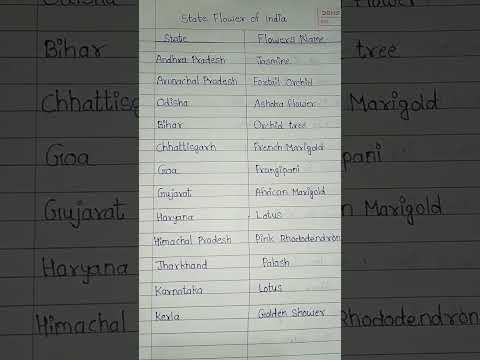 State Flower of India
State Flowers Name
Andhra Pradesh Jasmine
Arunachal Pradesh Foxtail Orchid
Odisha Ashoka flower
Bihar Orchid tree
Chhattisgarh French Marigold
Goa Frangipani
Gujarat African Marigold
Haryana Lotus
Himachal Pradesh Pink Rhododendron
Jharkhand Palash
Karnataka Lotus
Kerla Golden Shower
Bihar
Chhattisg
Goa
Gujarat
Haryana
Himachal
tree
Marigold
ipani
Marigold
Rhododendron